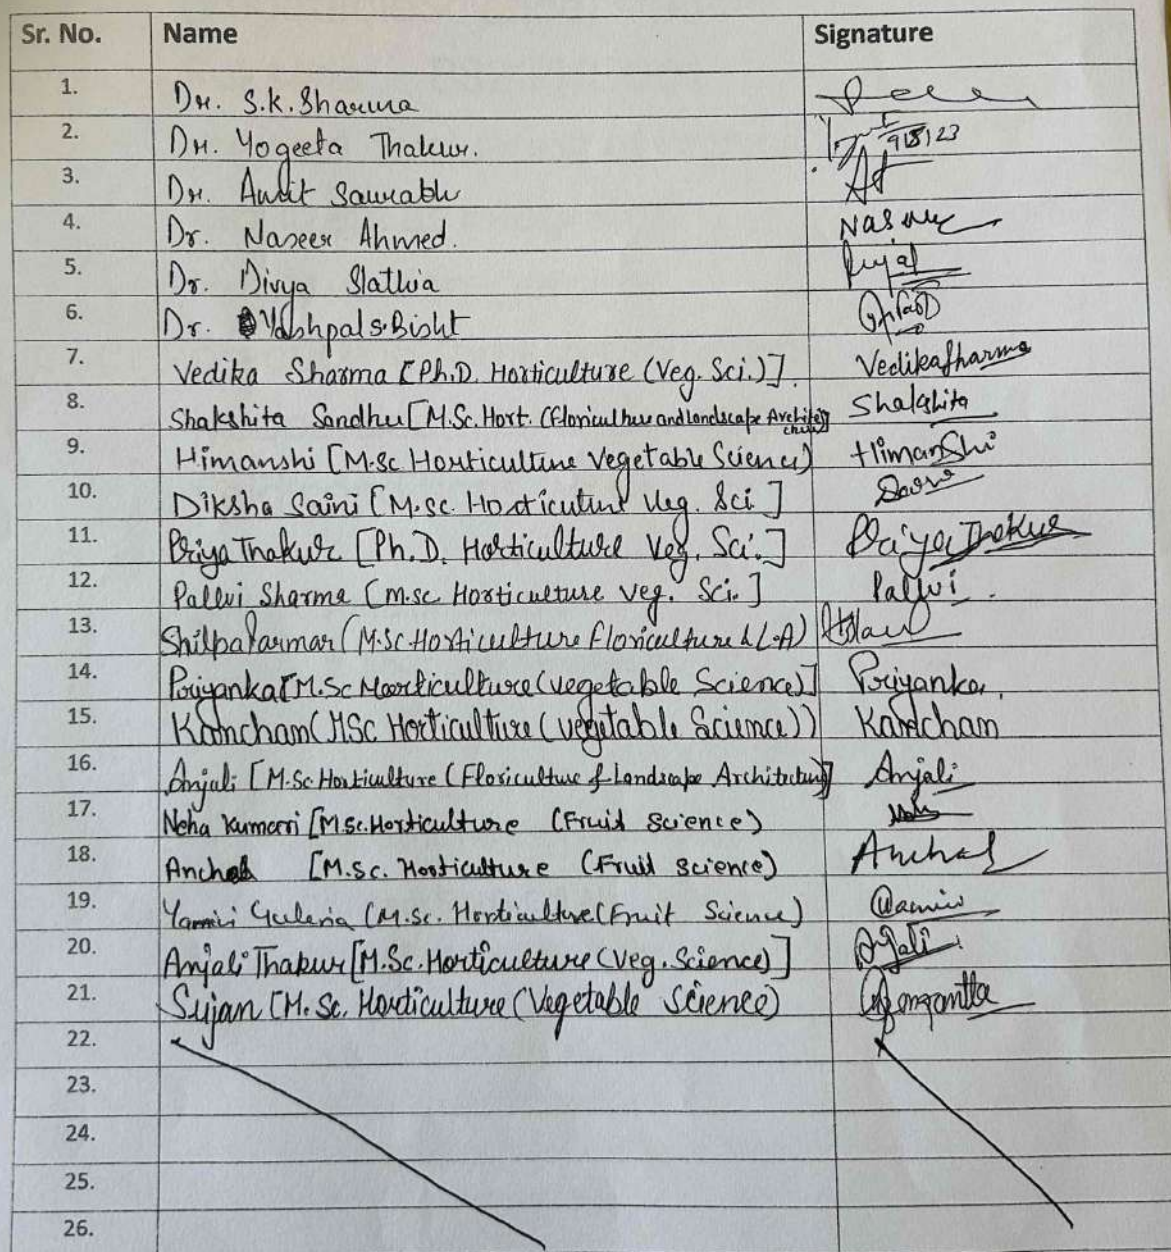 Sr. No. Name Signature
1. Dr. S.K. Sharma
2. Dr. Yogeeta Thakur. 9/5/23
3. Dr. Amit Saurabh
4. Dr. Naseer Ahmed.
5. Dr. Divya Slathia
6. Dr. Yashpal S. Bisht
7. Vedika Sharma [Ph.D. Horticulture (Veg. Sci.)]. Vedika Sharma
8. Shakshita Sandhu [M.Sc. Hort. (Floriculture and Landscape Architecture)] Shakshita
9. Himanshi [M.Sc Horticulture Vegetable Science) Himanshi
10. Diksha Saini [M.Sc. Horticuture Veg. Sci ]
11. Priya Thakur [Ph.D. Horticulture Veg. Sci.] Priya Thakur
12. Pallvi Sharma [M.Sc Horticulture Veg. Sci.] Pallvi.
13. Shilpa Parmar (M.Sc Horticulture Floriculture & L.A)
14. Priyanka [M.Sc Horticulture (Vegetable Science)] Priyanka
15. Kamcham (MSc Horticulture (Vegetable Science)) Kamcham
16. Anjali [M.Sc Horticulture (Floriculture & Landscape Architecture)] Anjali
17. Neha Kumari [M.Sc. Horticulture (Fruit Science)
18. Anchal [M.Sc. Horticulture (Fruit Science) Anchal
19. Yamini Guleria (M.Sc. Horticulture (Fruit Science) Yamini
20. Anjali Thakur [M.Sc. Horticulture (Veg. Science)] Anjali
21. Sujan [M. Sc. Horticulture (Vegetable Science)
22.
23.
24.
25.
26.